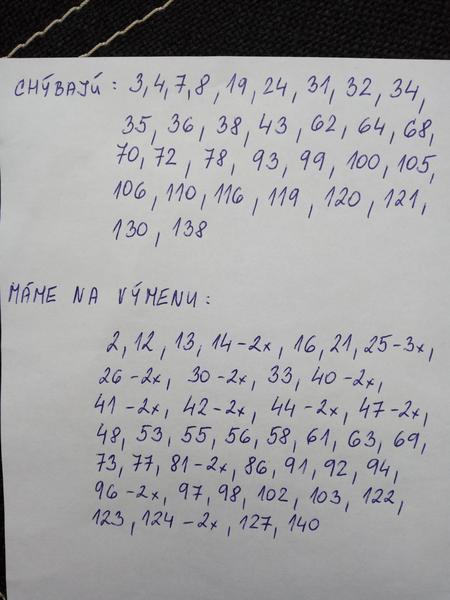 CHÝBAJÚ: 3,4,7,8,19,24,31,32,34,
35, 36, 38, 43, 62, 64, 68,
70, 72, 78, 93, 99, 100, 105,
106, 110, 116, 119, 120, 121,
130, 138
MÁME NA VÝMENU:
2, 12, 13, 14-2x, 16, 21, 25-3x,
26-2x, 30-2x, 33, 40-2x,
41-2x, 42-2x, 44-2x, 47-2x,
48, 53, 55, 56, 58, 61, 63, 69,
73, 77, 81-2x, 86, 91, 92, 94,
96-2x, 97, 98, 102, 103, 122,
123, 124-2x, 127, 140